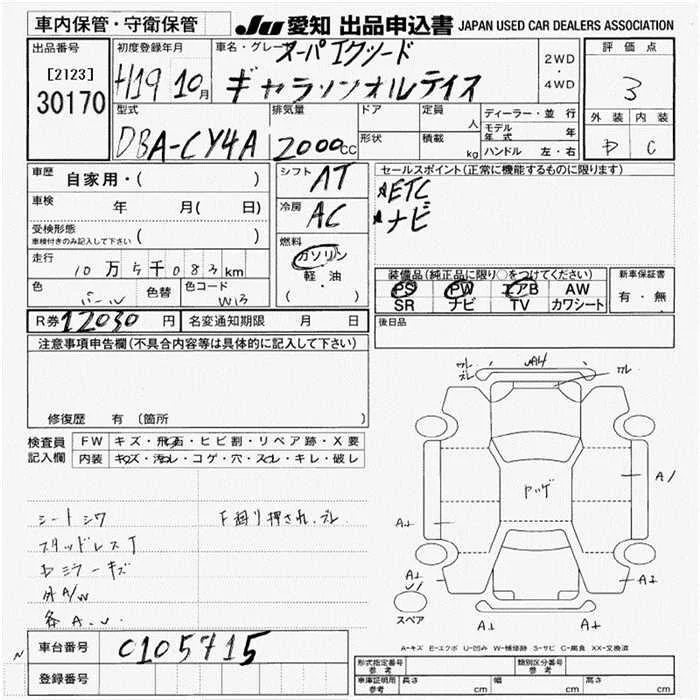 車内保管・守衛保管
JU 愛知 出品申込書 JAPAN USED CAR DEALERS ASSOCIATION
出品番号
[2123]
30170
初度登録年月
H19 10月
車名・グレード
スーパーエクシード
ギャラン フォルティス
2WD
・
4WD
評価点
3
外装 内装
C
型式
DBA-CY4A
排気量
2000cc
ドア
形状
定員
人
積載
kg
ディーラー・並行
モデル年式 年
ハンドル 左・右
車歴
自家用・( )
車検 年 月( 日)
受検形態
車検付きのみ記入して下さい ( )
走行
10万5千083km
色
パール
色替
色コード
W13
シフト
AT
冷房
AC
燃料
ガソリン
・
軽・油
( )
セールスポイント(正常に機能するものに限ります)
★ETC
★ナビ
装備品(純正品に限り○をつけてください)
PS PW エアB AW
SR ナビ TV カワシート
新車保証書
有・無
R券 12030円
名変通知期限 月 日
後日品
注意事項申告欄(不具合内容等は具体的に記入して下さい)
修復歴 有 (箇所 )
検査員記入欄
FW キズ・飛石・ヒビ割・リペア跡・X要
内装 キズ・汚れ・コゲ・穴・スレ・キレ・破レ
シートシワ
スタッドレスT
キズ
外A/W
各A.U.
下廻り押され、ズレ
ワレ
ズレ
ワレ
A1
A1
A1
U1
A1
A1
A1
スペア
A-キズ E-エクボ U-凹み W-補修跡 S-サビ C-腐食 XX-交換済
車台番号
0105715
登録番号
形式指定番号
参考
類別区分番号
参考
車庫証明用
参考
長さ cm
幅 cm
高さ cm